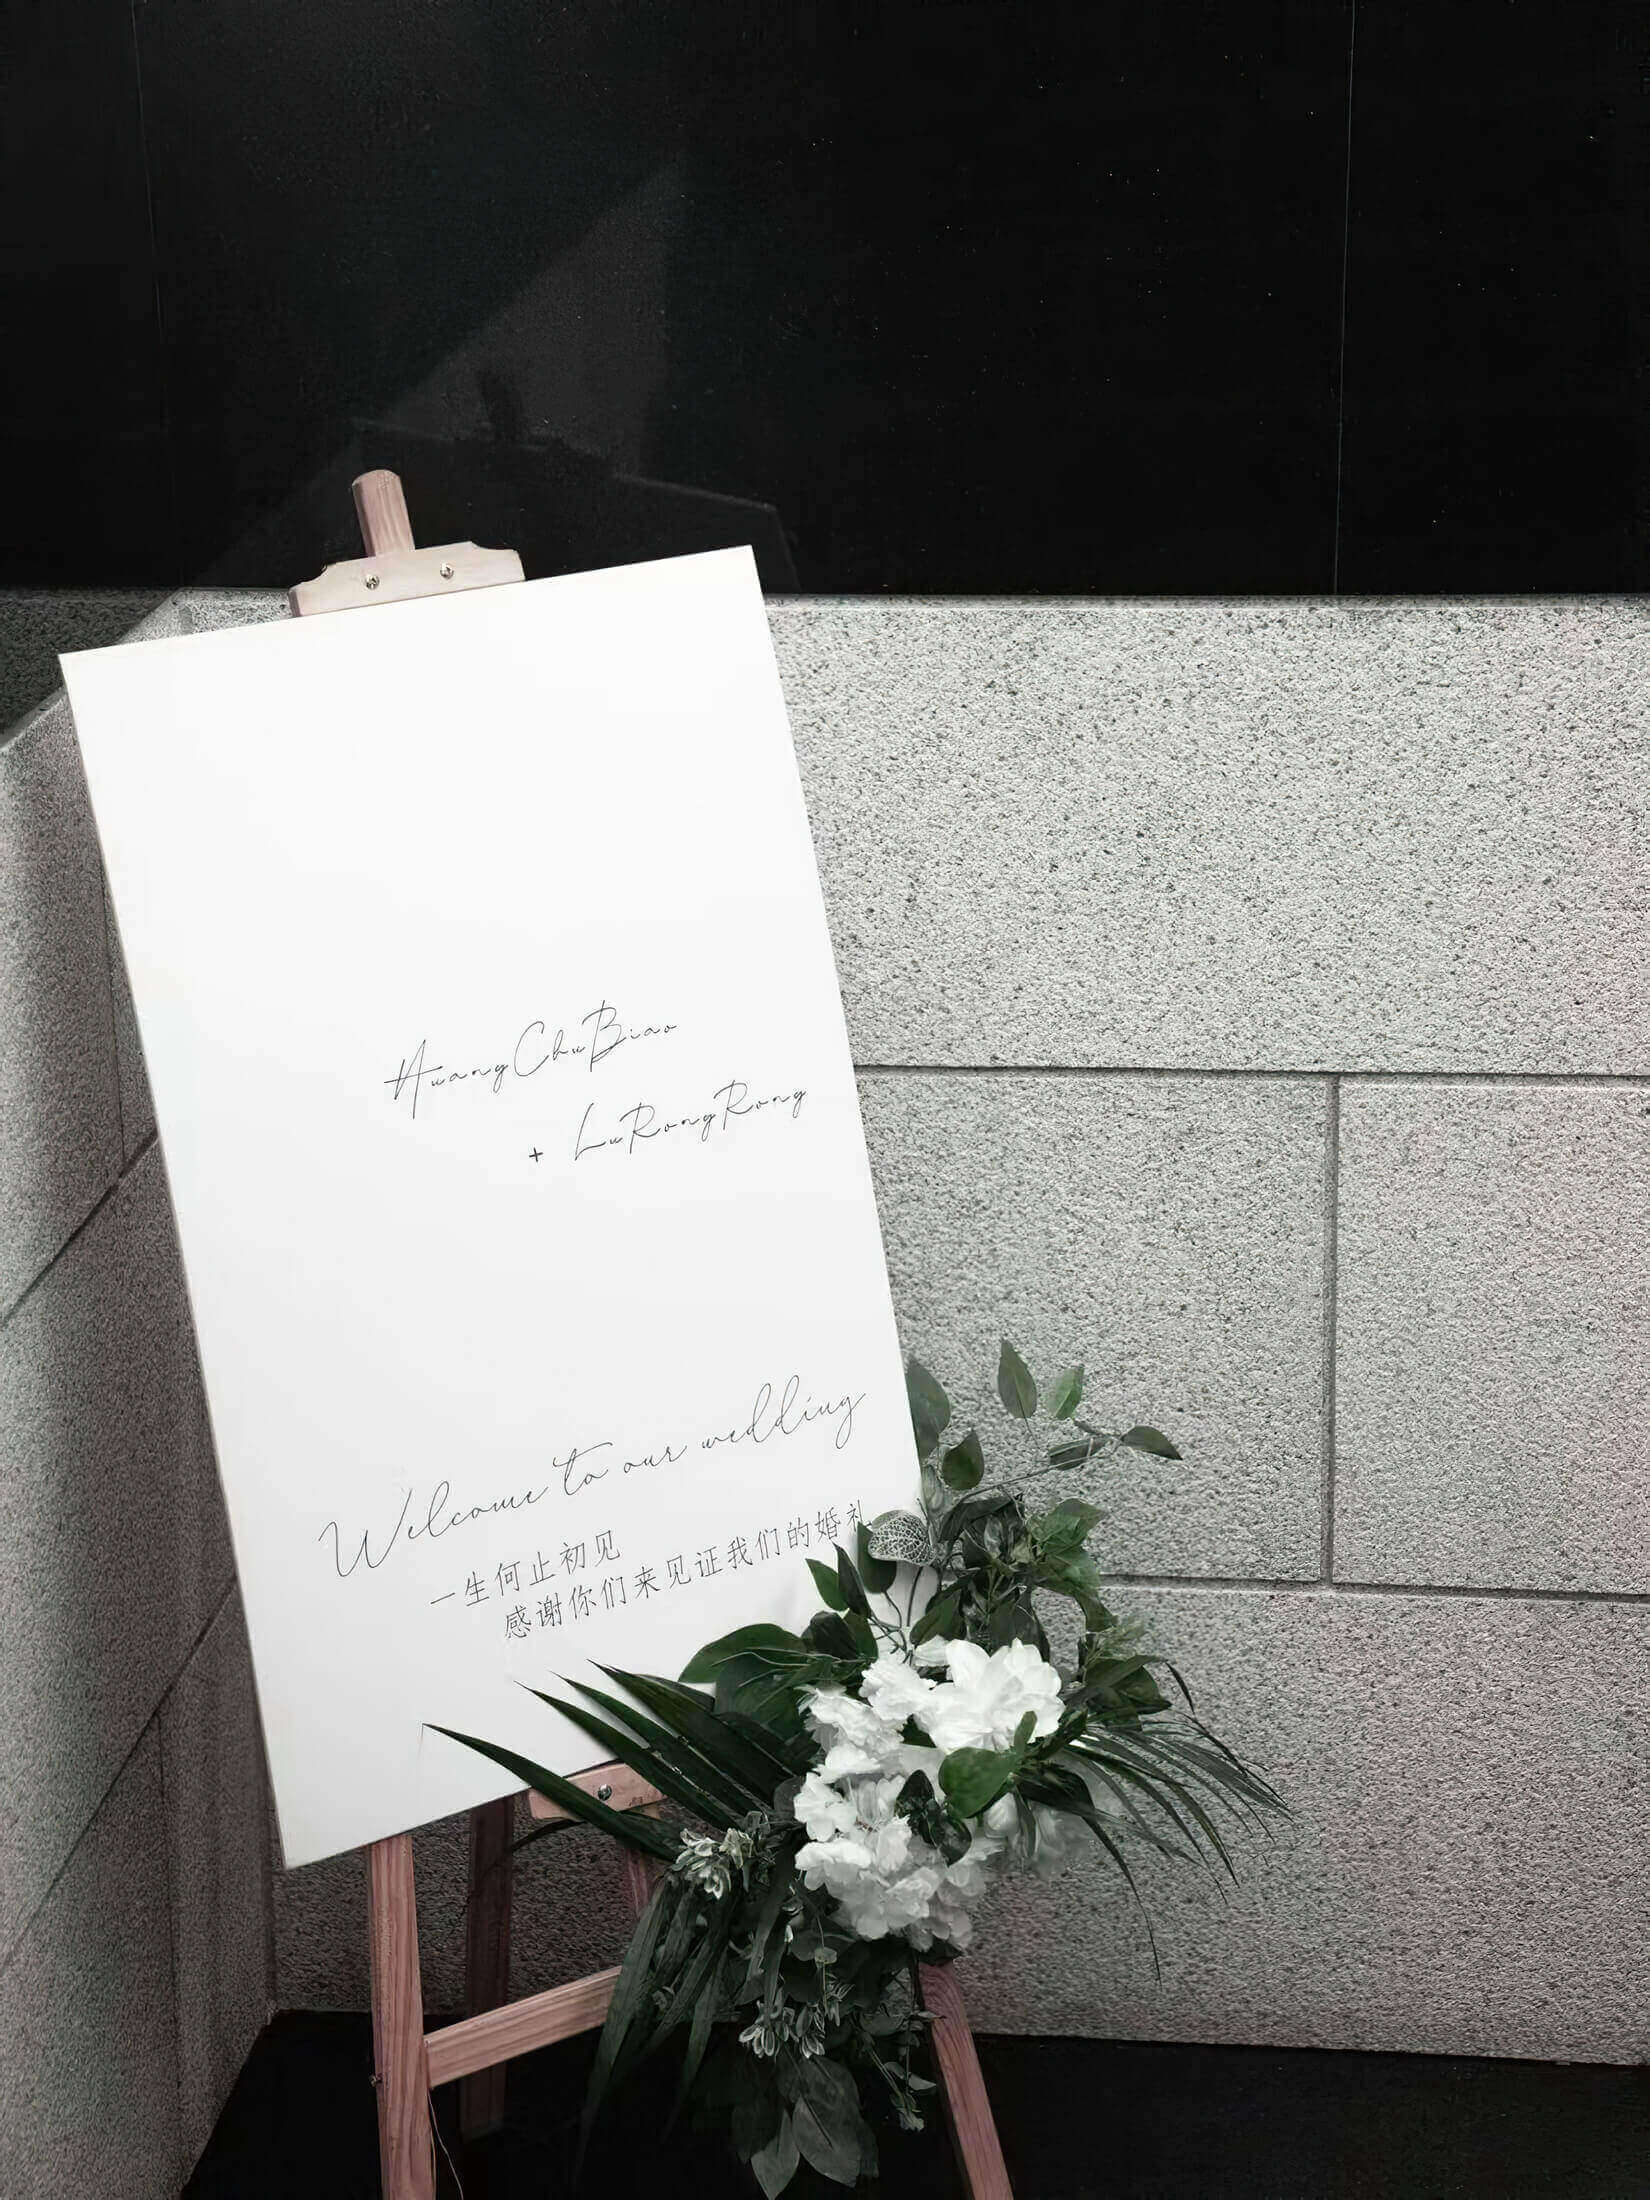 HuangChuBiao
+ LuRongRong
Welcome to our wedding
一生何止初见
感谢你们来见证我们的婚礼